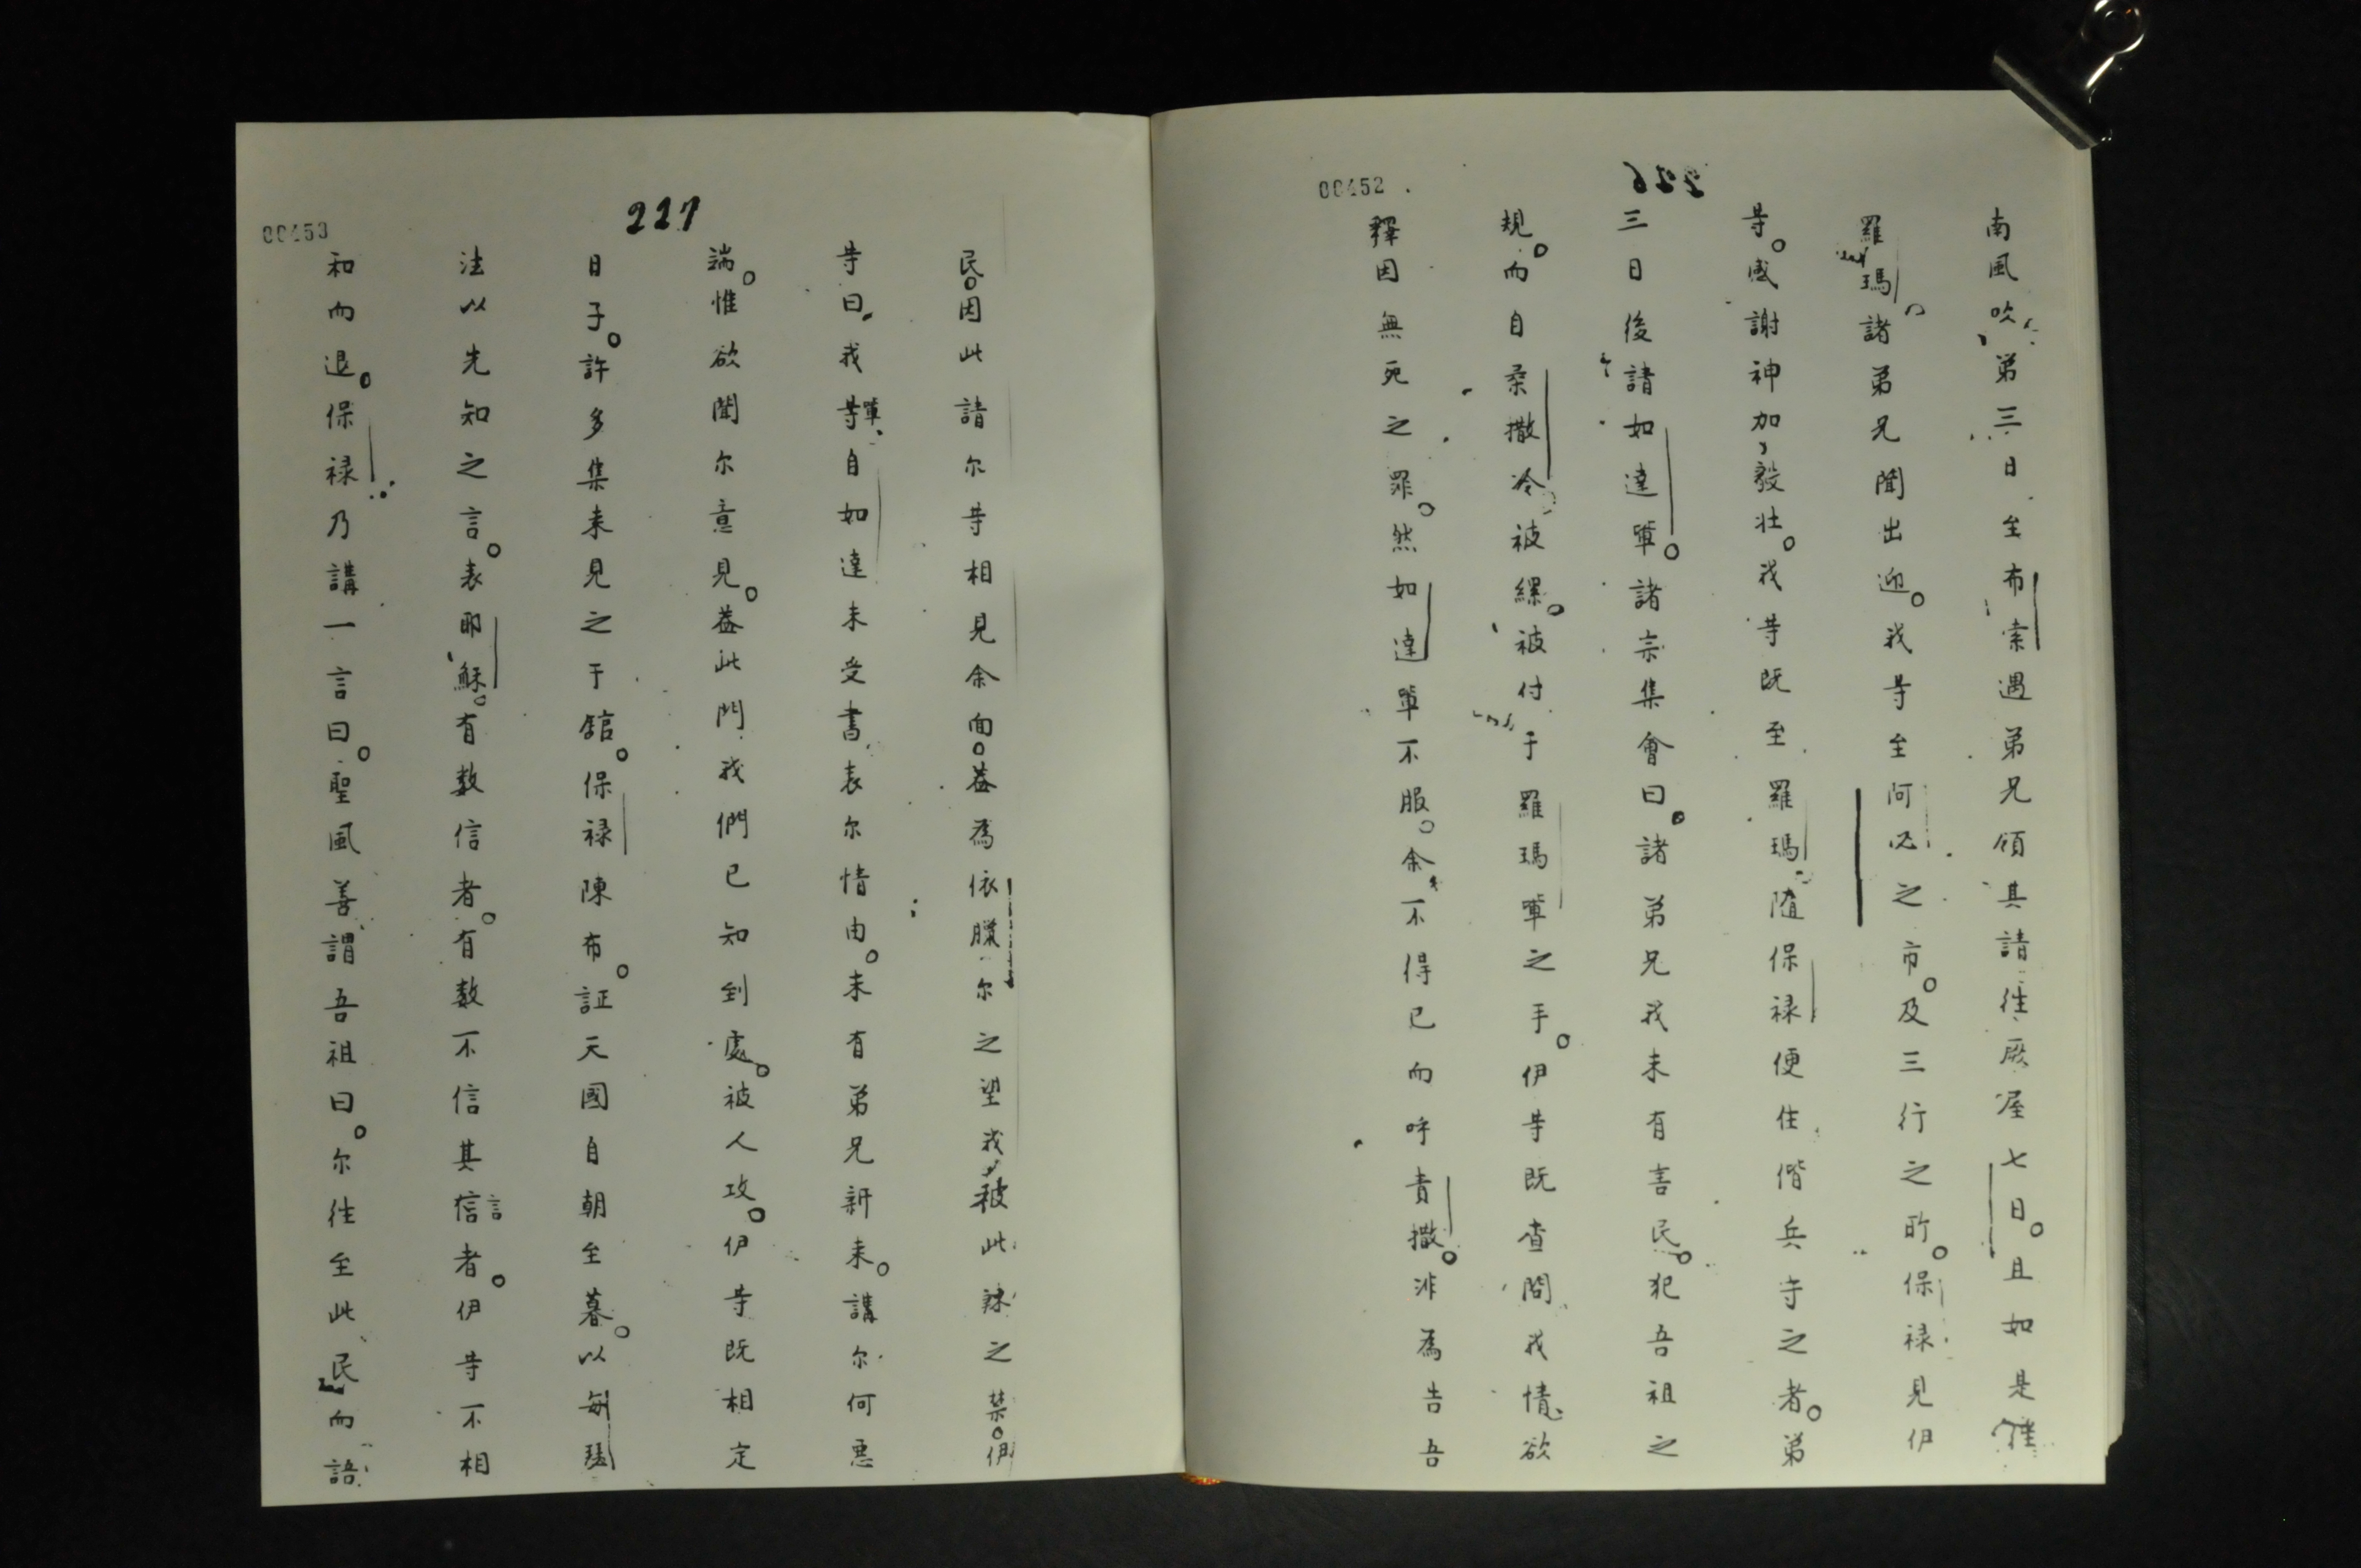 00452
226
南風吹第三日至布索遇弟兄領其請往厥屋七日。且如是往
羅瑪。諸弟兄聞出迎。我等至阿必之市。及三行之所。保禄見伊
等。感謝神加毅壮。我等既至羅瑪。随保禄便住偕兵守之者。第
三日後請如達輩。諸宗集會曰。諸弟兄我未有害民。犯吾祖之
規。而自柔撒冷被縲。被付于羅瑪輩之手。伊等既查問我情、欲
釋因無死之罪。然如達輩不服。余不得已而呼責撒。非為告吾
00453
227
民。因此請尔等相見余面。蓋為依臘尔之望我被此練之禁。伊
等曰。我等輩自如達未受書表尔情由。未有弟兄新来。講尔何悪
端。惟欲聞尔意見。蓋此門我們已知到處。被人攻。伊等既相定
日子。許多集来見之于舘。保禄陳布。証天國自朝至暮。以每瑟
法以先知之言。表耶穌。有数信者。有数不信其信言者。伊等不相
和而退。保禄乃講一言曰。聖風善謂吾祖曰。尔往至此民而語